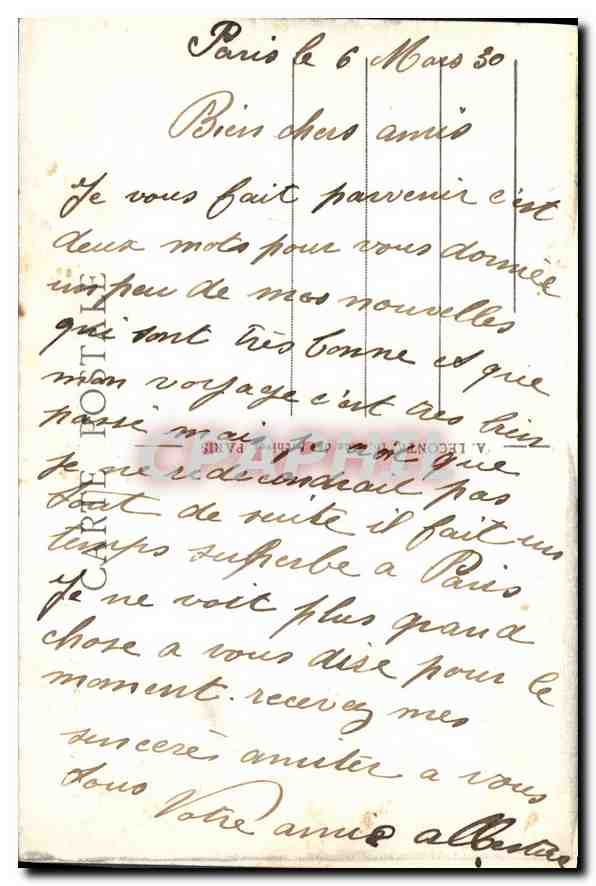 Paris le 6 Mars 30
Bien chers amis
Je vous fait parvenir c'est
deux mots pour vous donnée
un peu de mes nouvelles
qui sont très bonne et que
mon voyage c'est tres bien
passé mais je croi que
je ne redecendrait pas
tout de suite il fait un
temps superbe a Paris
Je ne voit plus grand
chose a vous dise pour le
moment. recevez mes
sincerès amitér a vous
tous
Votre amie
CARTE POSTALE
A. LECONTE, PARIS